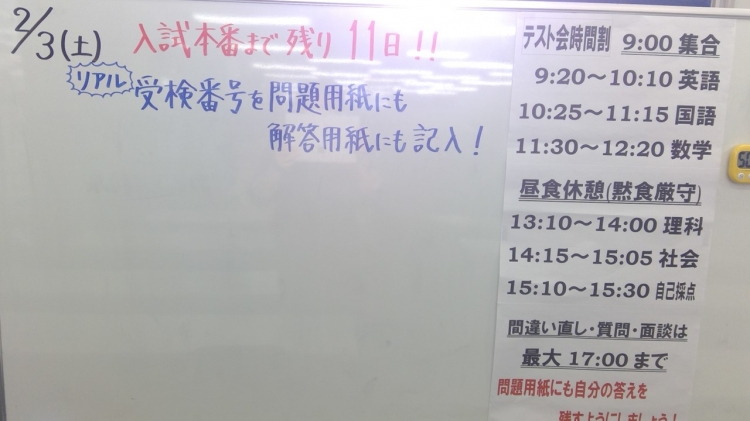 2/3(土) 入試本番まで残り11日!!
リアル 受検番号を問題用紙にも
解答用紙にも記入!
テスト会時間割 9:00 集合
9:20～10:10 英語
10:25～11:15 国語
11:30～12:20 数学
昼食休憩(黙食厳守)
13:10～14:00 理科
14:15～15:05 社会
15:10～15:30 自己採点
間違い直し・質問・面談は
最大 17:00 まで
問題用紙にも自分の答えを
残すようにしましょう!